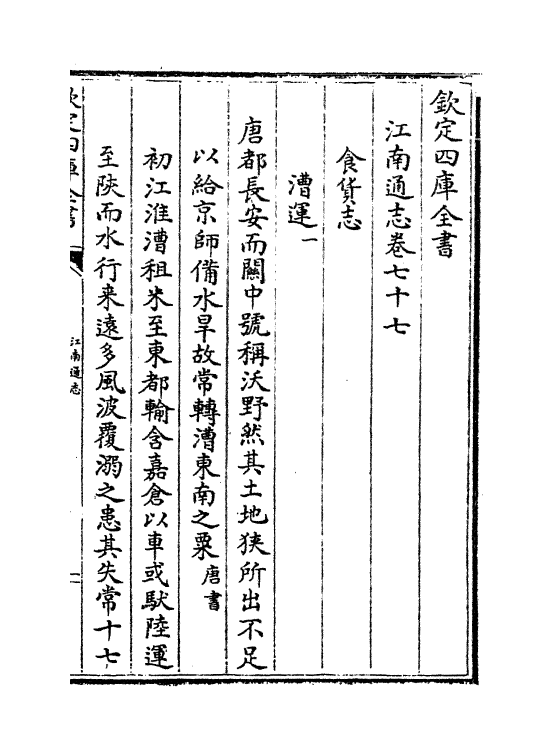 欽定四庫全書
江南通志卷七十七
食貨志
漕運一
唐都長安而關中號稱沃野然其土地狹所出不足
以給京師備水旱故常轉漕東南之粟唐書
初江淮漕租米至東都輸含嘉倉以車或馱陸運
至陜而水行来遠多風波覆溺之患其失常十七
欽定四庫全書
江南通志
一